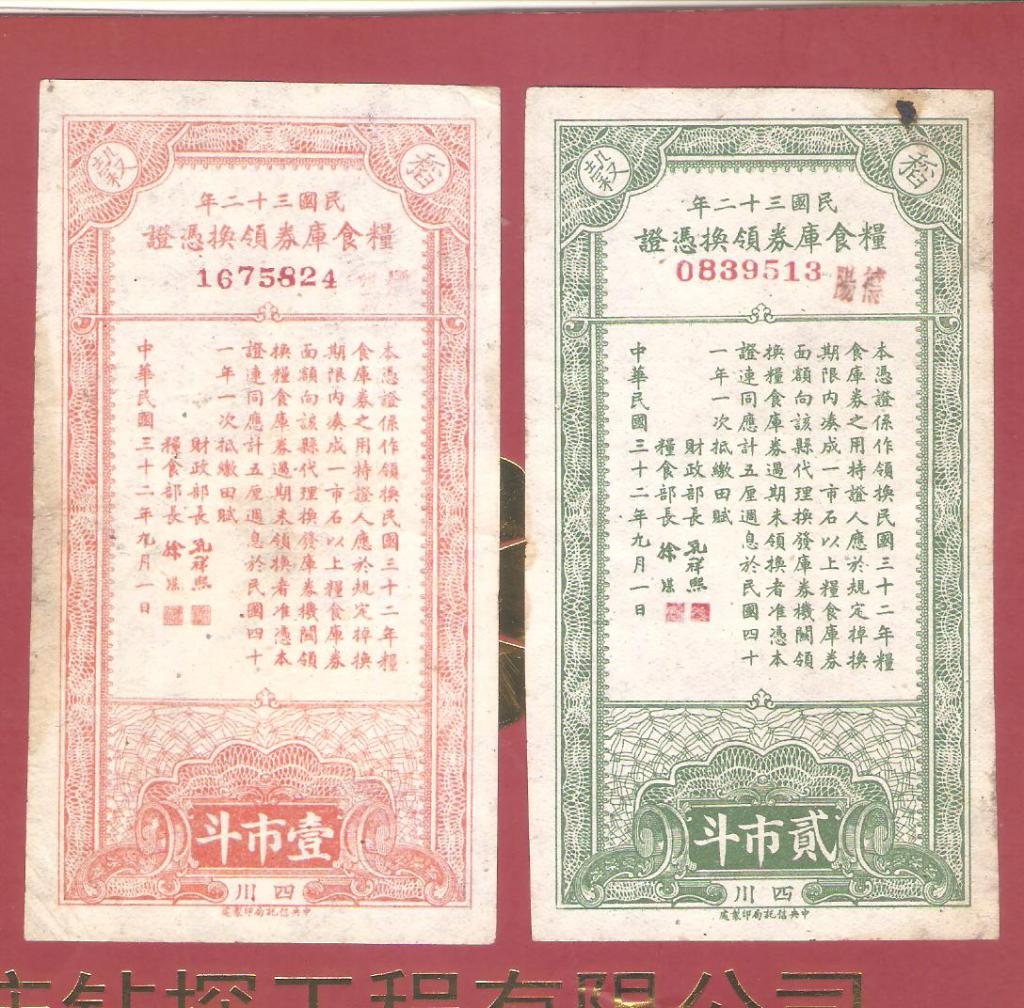 稻穀
民國三十二年
糧食庫券領換憑證
1675824
本憑證係作領換民國三十二年糧
食庫券之用持證人應於規定掉換
期限內湊成一市石以上糧食庫券
面額向該縣代理換發庫券機關領
換糧食庫券過期未領換者准憑本
證連同應計五厘週息於民國四十
一年一次抵繳田賦
財政部長 孔祥熙
糧食部長 徐堪
中華民國三十二年九月一日
壹市斗
四川
中央信託局印製處
稻穀
民國三十二年
糧食庫券領換憑證
0839513
德陽
本憑證係作領換民國三十二年糧
食庫券之用持證人應於規定掉換
期限內湊成一市石以上糧食庫券
面額向該縣代理換發庫券機關領
換糧食庫券過期未領換者准憑本
證連同應計五厘週息於民國四十
一年一次抵繳田賦
財政部長 孔祥熙
糧食部長 徐堪
中華民國三十二年九月一日
貳市斗
四川
中央信託局印製處
钻探工程有限公司